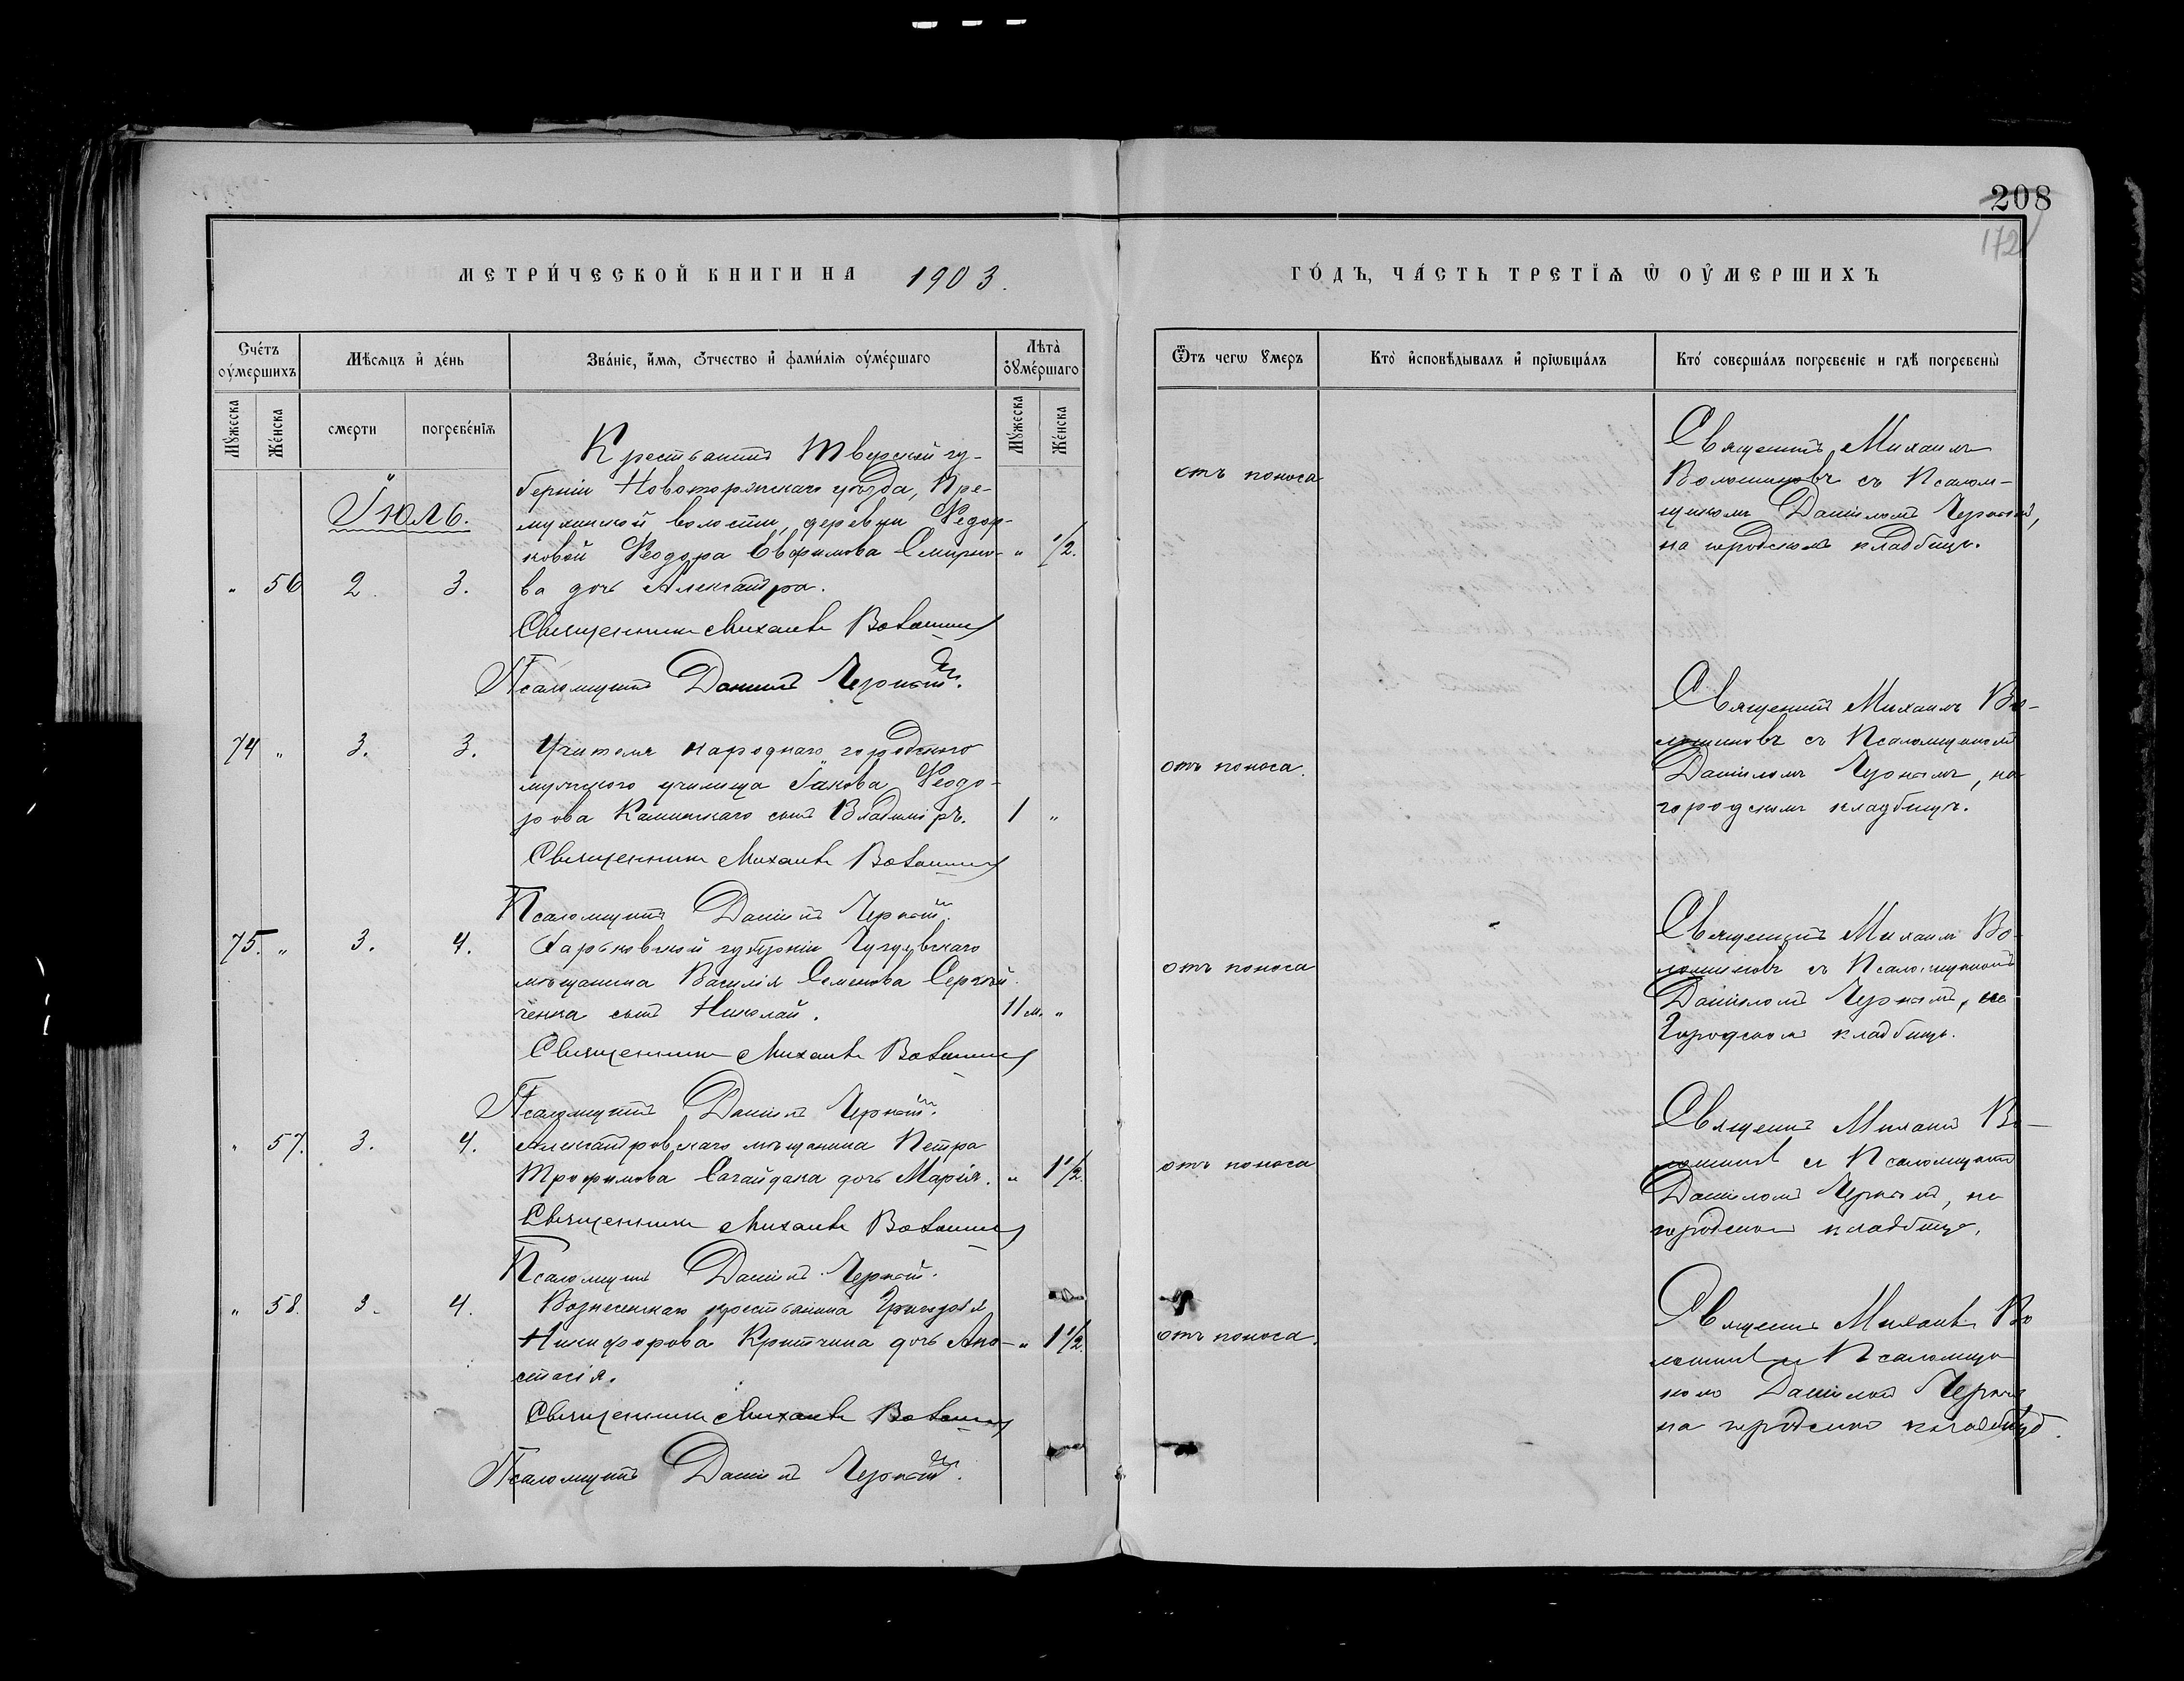 208
172
МЕТРИ́ЧЕСКОЙ КНИГИ НА 1903.
ГО́ДЪ, ЧА́СТЬ ТРЕТІѦ Ѡ҆ ОУ҆МЕРШИХЪ
Сче́тъ оу҆ме́ршихъ
Мѣ́сѧцъ и҆ де́нь
Зва́нїе, и҆́мѧ, ѻ҆́тчество и҆ фами́лїѧ оу҆ме́ршаго
Лѣ́та оу҆ме́ршаго
Ѿ чегѡ̀ ᲂумеръ
Кто̀ и҆сповѣ́дывалъ и҆ прїѡбща́лъ
Кто́ соверша́лъ погребе́нїе и гдѣ̀ погребены̀
Мꙋ́жеска
Же́нска
смерти
погребе́нїѧ
Мꙋ́жеска
Же́нска
Іюль.
Крестьянина Тверской гу-
берніи Новоторжскаго уѣзда, Пре-
мухинской волости, деревни Ѳедор-
ковой Ѳеодора Евфимова Смирно- " 1/2.
" 56 2. 3. ва дочь Александра.
Священникъ Михаилъ Волошинов
Псаломщикъ Даніилъ Черный.
отъ поноса
Священникъ Михаилъ
Волошиновъ съ Псалом-
щикомъ Даніиломъ Чернымъ,
на городскомъ кладбищѣ.
74 " 3. 3. Учителя народнаго городского
мужского училища Іакова Ѳеодо-
рова Каминскаго сынъ Владиміръ. 1 "
Священникъ Михаилъ Волошинов
Псаломщикъ Даніилъ Черный.
отъ поноса.
Священникъ Михаилъ Во-
лошиновъ съ Псаломщикомъ
Даніиломъ Чернымъ, на
городскомъ кладбищѣ.
75. " 3. 4. Харьковской губерніи Чугуевскаго
мѣщанина Василія Семенова Сергѣй-
ченка сынъ Николай. 11 м. "
Священникъ Михаилъ Волошинов
Псаломщикъ Даніилъ Черный.
отъ поноса
Священникъ Михаилъ Во-
лошиновъ съ Псаломщикомъ
Даніиломъ Чернымъ, на
Городскомъ кладбищѣ.
" 57. 3. 4. Александровскаго мѣщанина Петра
Трофимова Сагайдака дочь Марія. " 1 1/2.
Священникъ Михаилъ Волошинов
Псаломщикъ Даніилъ Черный.
отъ поноса
Священникъ Михаилъ Во-
лошиновъ съ Псаломщикомъ
Даніиломъ Чернымъ, на
городскомъ кладбищѣ.
" 58. 3. 4. Вознесенскаго крестьянина Григорія
Никифорова дочь Ана- " 1 1/2.
стасія.
Священникъ Михаилъ Волошинов
Псаломщикъ Даніилъ Черный.
отъ поноса.
Священникъ Михаилъ Во
лошиновъ съ Псаломщи
комъ Даніиломъ Чернымъ
на городскомъ кладбищѣ.